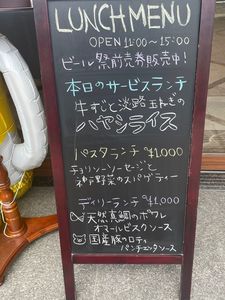 LUNCH MENU
OPEN 11:00〜15:00
ビール祭前売券販売中!
本日のサービスランチ
牛すじと淡路玉ねぎの
ハヤシライス
パスタランチ ¥1,000
チョリソーソーセージと
神戸野菜のスパゲティー
ディリーランチ ¥1,000
天然真鯛のポワレ
オマールビスクソース
国産豚のロティ
パンチェッタソース